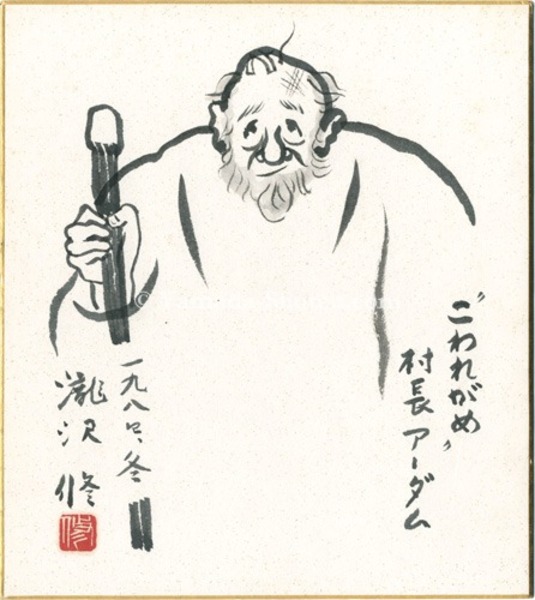 〝こわれがめ〟
村長 アーダム
一九八〇、冬
瀧沢 修
修